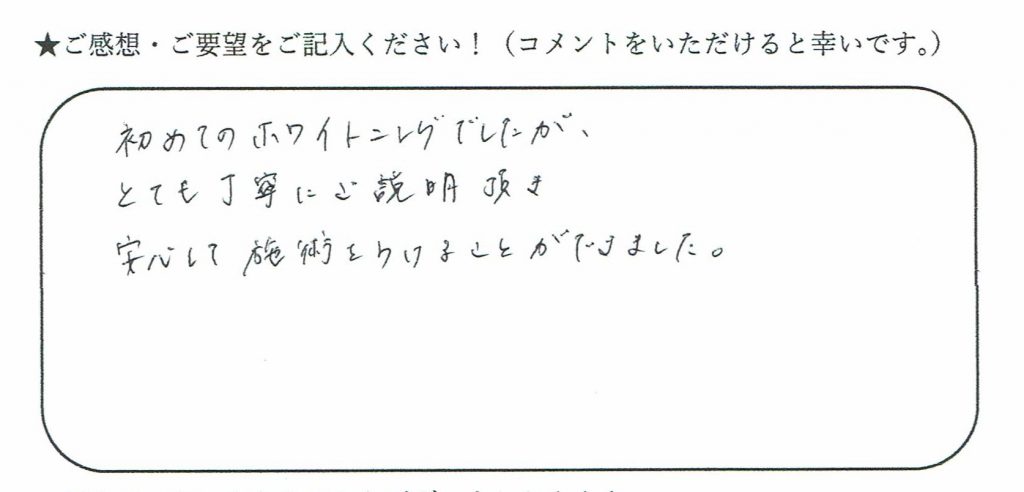 ★ご感想・ご要望をご記入ください！（コメントをいただけると幸いです。）
初めてのホワイトニングでしたが、
とても丁寧にご説明頂き
安心して施術をうけることができました。